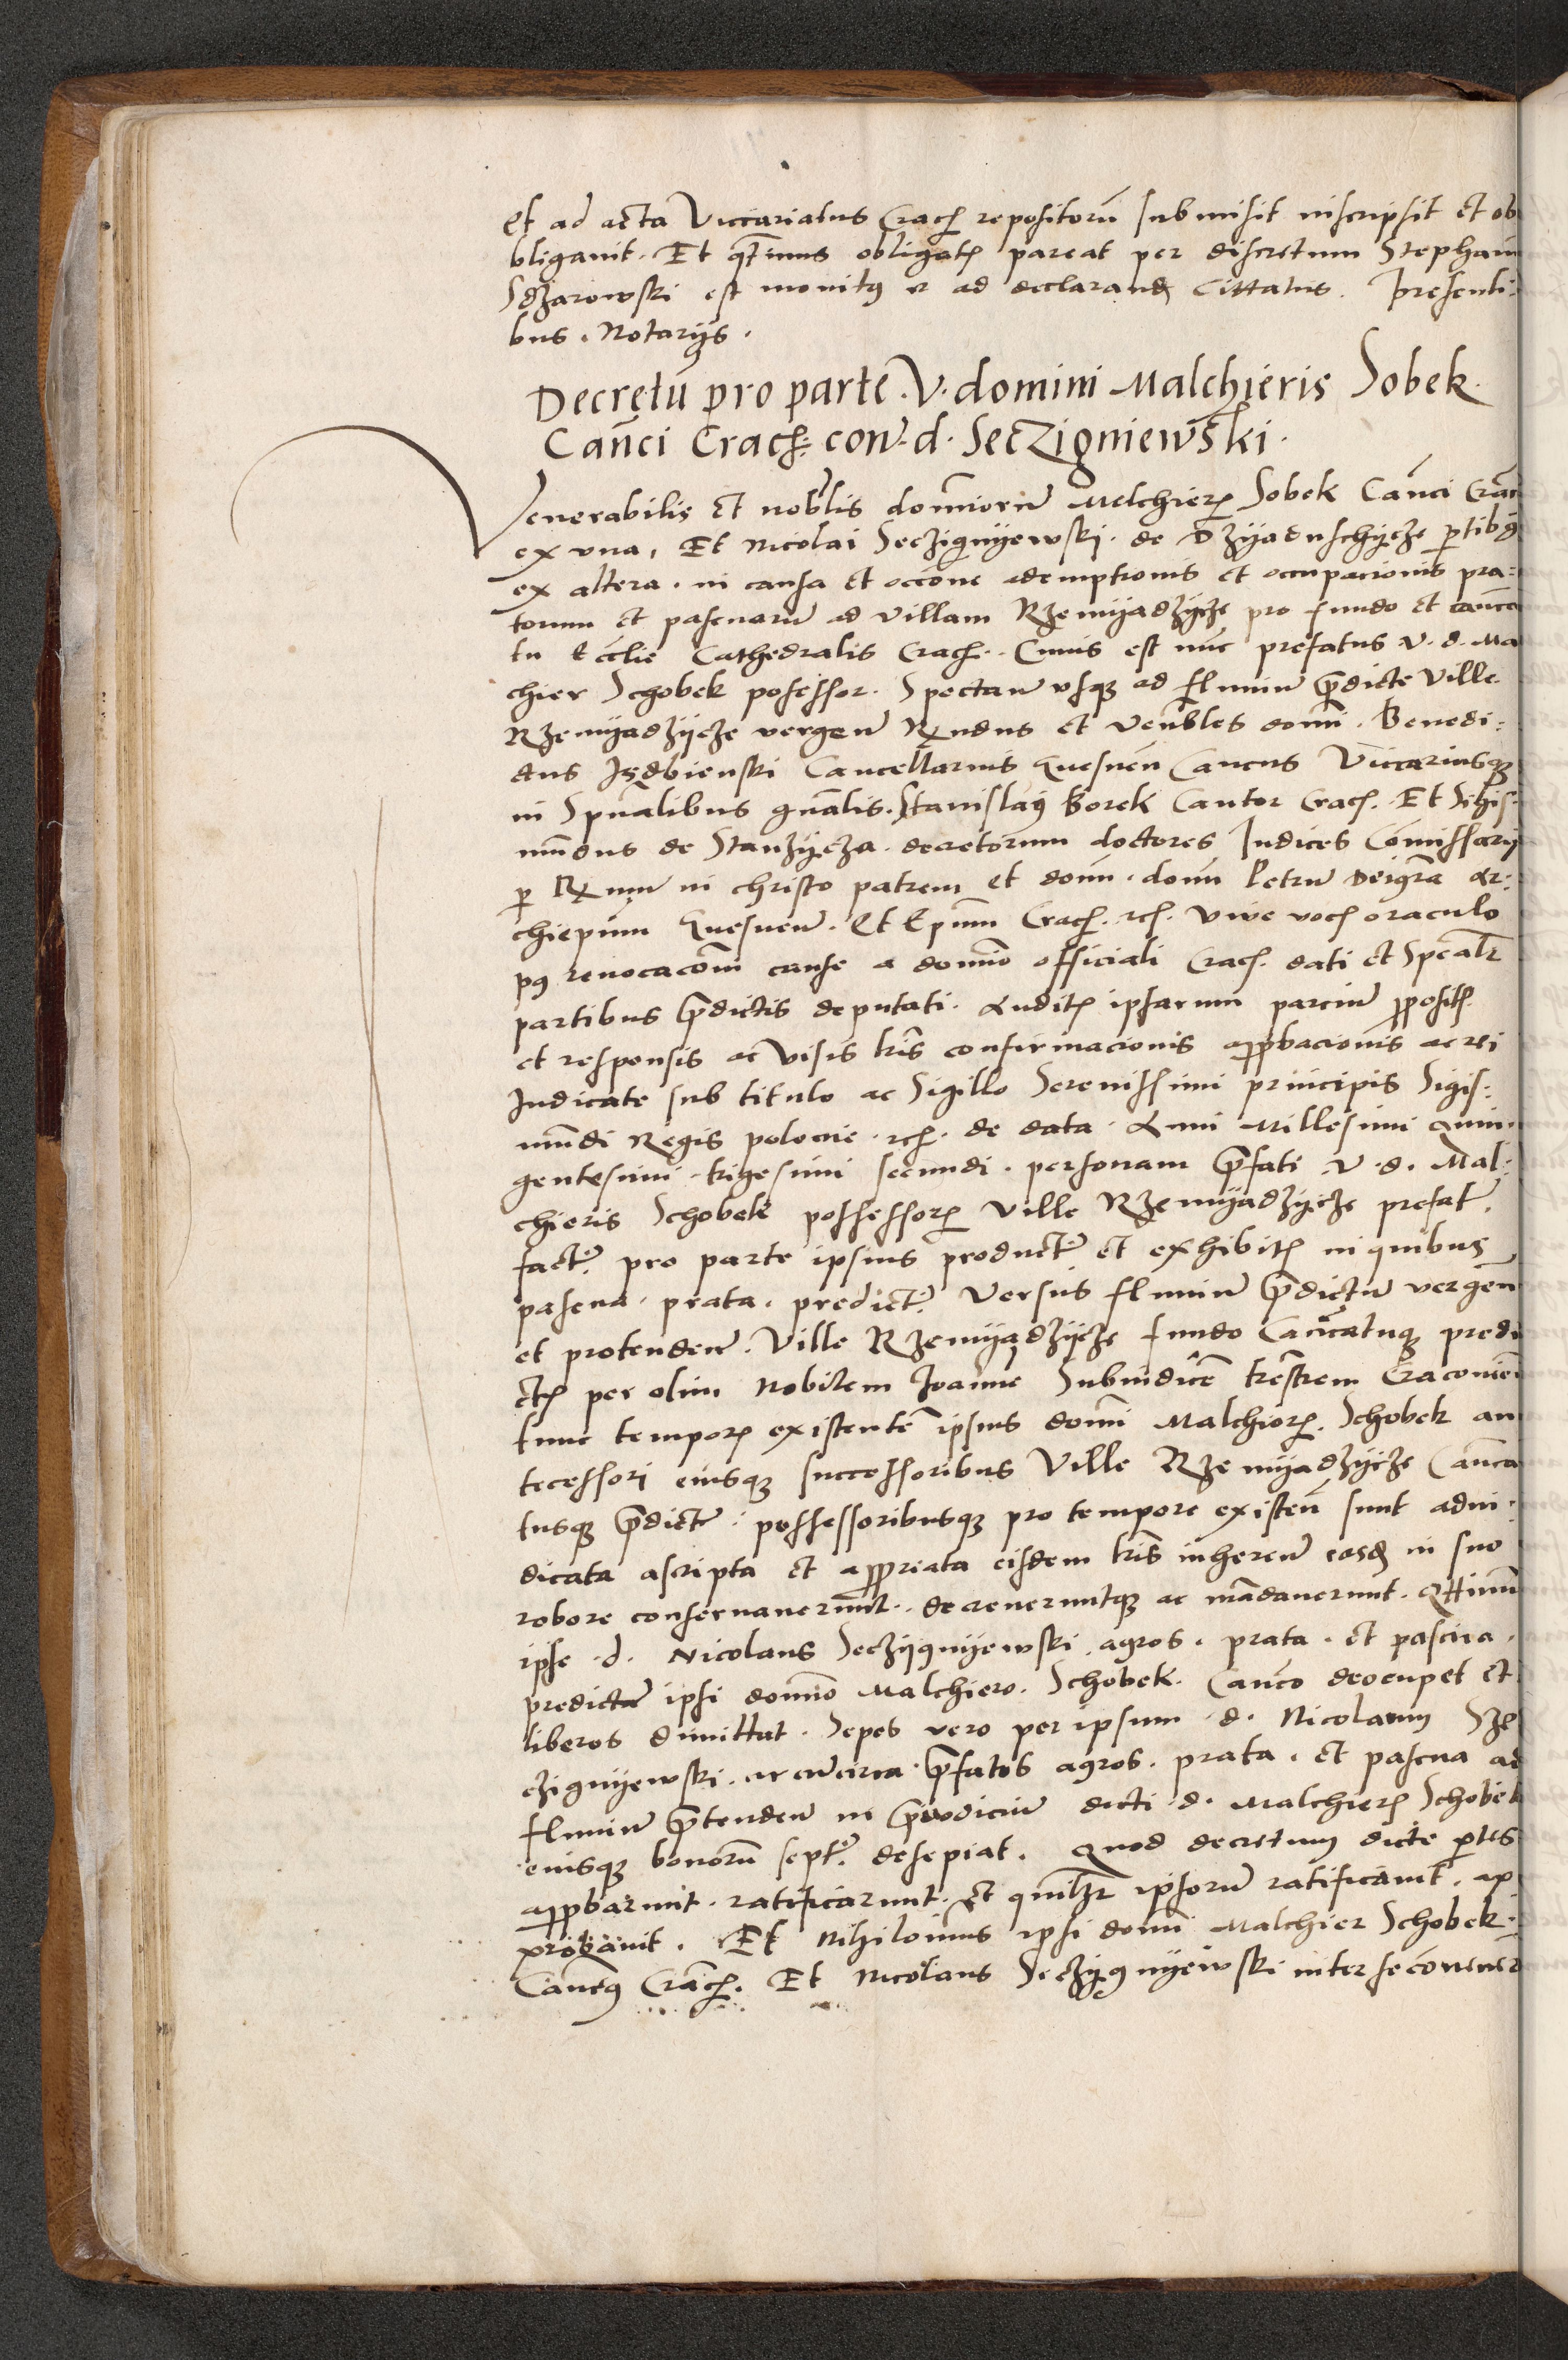 Et ad acta Viccariatus Cracꝭ repositorũ submisit inscripsit et ob
bligavit. Et q̃tinus obligatꝭ pareat per discretum Stephanũ
Sdzarowski est monitꝰ et ad declarandꝭ Cittatus. Presenti=
bus. Notarijs.
Decretũ pro parte. V. domini Malchieris Sobek.
Cañci Cracꝭ: con̄. d. Seczigniewski.
Venerabilis et nobĩlis dom̃iorũ Melchierꝭ Sobek Cañci Crac̃
ex una, Et Nicolai Seczignyewski. de Dzyaduschycze ꝑtibꝰ
ex altera. in causa et occõne ademptionis et occupacionis pra=
torum et pascuarũ ad villam Rzemyadzycze pro fundo et cañca
tu Ecc̃lie Cathedralis Cracꝭ. Cuius est nũc prefatus V. d. Ma
chier Schobek possessor. Spectan̄ usqꝫ ad fluuiũ p̃dicte Ville.
Rzemyadzycze vergen̄ Rn̄dus et Veñbles domĩ. Benedi=
ctus Isdbienski Cancellarius Gnesneñ Cancus Viccariusqꝫ
in Spũalibus gñalis. Stanislaꝰ Borek Cantor Cracꝭ. Et Sihis=
mũdus de Stanzycza. decretorum doctores Iudices Com̃issarij
ꝑ Rm̄um in christo patrem et dom̃. dom̃ Petrũ Deigr̃a Ar=
chiep̃um Gnesnen̄. Et Ep̃um Cracꝭ. rcꝭ. vive vocꝭ oraculo
pꝰ revocacõm cause a domĩo officiali Cracꝭ. dati et Spealr̃
partibus p̃dictis deputati. Auditꝭ ipsarum parciũ ꝓpositꝭ
et responsis ac visis lr̃is confirmacionis approbacionis ac rei
Iudicate sub titulo ac Sigillo Serenissimi principis Sigis=
mũdi Regis polonie. rcꝭ. de data. Anni Millesimi Quin=
gentesimi. trigesimi secundi. personam p̃fati V. d. Mal=
chieris Schobek possessorꝭ Ville Rzemyadzycze prefat̃.
fact̃. pro parte ipsius product̃ et exhibitꝭ in quibus
pascua. prata. predict̃. Versus fluuiũ p̃dictũ vergeñ
et protenden̄. Ville Rzemyadzycze fundo Cañcatuqꝫ predi
ctꝭ per olim Nobilem Joannẽ Subiudicẽ trẽstrem Cracovieñ
tunc temporꝭ existentẽ ipsius domĩ Malchiorꝭ. Schobek an
tecessori eiusqꝫ successoribus Ville Rzemyadzycze Cañca
tusqꝫ p̃dict̃: possessoribusqꝫ pro tempore existeñ sunt adiu=
dicata ascripta et appropriata eisdem lr̃is inheren̄ easdꝭ in suo
robore conservaverunt. decreveruntqꝫ ac mãdaverunt. Q̃tinus
ipse d. Nicolaus Seczygnyewski agros. prata. et pascua.
predicta ipsi domĩo Malchiero. Schobek. Cañco deocupet et
liberos dimittat. Sepes vero per ipsum d. Nicolaum Sze
czignyewski. circumcirca p̃fatos agros. prata. et pascua ad
fluuiũ p̃tenden̄ in p̃iudiciũ dicti d. Malchierꝭ Schobek
eiusqꝫ bonorũ sept̃. desepiat. Quod decretum dicte ꝑtes
approbarunt. ratificarunt. Et quilibet ipsorũ ratificavit. ap
probavit. Et Nihilominus ipsi domĩ Malchier Schobek.
Cañcꝰ Crac̃ꝭ. Et Nicolaus Seczygnyewski inter se convener̃